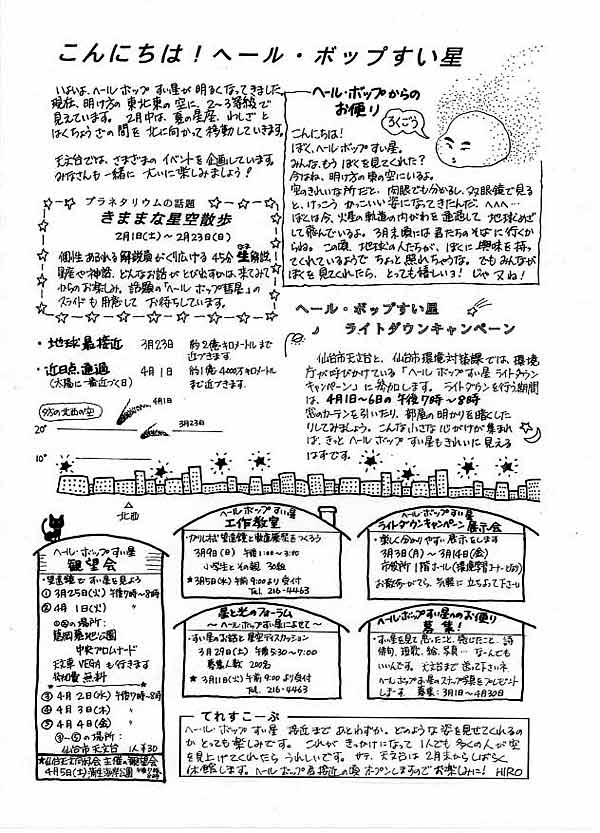 こんにちは！ヘール・ボップすい星
いよいよ、ヘール・ボップすい星が明るくなってきました。
現在、明け方の東北東の空に、2〜3等級で
見えています。2月中は、夏の星座、わしざと
はくちょうざの間を北に向かって移動していきます。
天文台では、さまざまのイベントを企画しています。
みなさんも一緒に大いに楽しみましょう！
ヘール・ボップからの
お便り
ろくごう
こんにちは！
ぼく、ヘール・ボップすい星。
みんな、もうぼくを見てくれた？
今はね、明け方の東の空にいるよ。
空のきれいな所だと、肉眼でも分かるし、双眼鏡で見る
と、けっこうかっこいい姿になってきたんだ。へへへ…
ぼくは今、火星の軌道の内がわを通過して地球めざ
して飛んでいるよ。3月末頃には君たちのそばに行くか
らね。この頃、地球の人たちが、ぼくに興味を持っ
てくれているようでちょっと照れちゃうな。でもみんなが
ぼくを見てくれたら、とっても嬉しいョ！じゃ又ね！
プラネタリウムの話題
きままな星空散歩
2月1日(土)〜2月23日(日)
個性あふれる解説員がくりひろげる45分生解説
星座や神話、どんなお話がとび出すかは、来てみて
からのお楽しみ。話題の「ヘール・ボップ彗星」の
スライドも用意してお待ちしています。
・地球最接近 3月23日 約2億キロメートルまで
近づきます。
・近日点通過 4月1日 約1億4000万キロメートル
(太陽に一番近づく日) まで近づきます。
夕方の北西の空
4月1日
3月23日
20°
10°
北西
ヘール・ボップすい星
ライトダウンキャンペーン
仙台市天文台と、仙台市環境対策課では、環境
庁が呼びかけている「ヘール・ボップすい星ライトダウン
キャンペーン」に参加します。ライトダウンを行う期間
は、4月1日〜6日の午後7時〜8時
窓のカーテンを引いたり、部屋の明かりを暗くした
りしてみましょう。こんな小さな心がけが集まれ
ば、きっとヘール・ボップすい星もきれいに見える
はずです。
ヘール・ボップすい星
観望会
・望遠鏡ですい星を見よう
①3月25日(火)午後7時〜8時
②4月1日(火) 〃
①②の場所：
葛岡墓地公園
中央プロムナード
天文車VEGAも行きます
参加費 無料
③4月2日(水)午後7時〜8時
④4月3日(木) 〃
⑤4月4日(金) 〃
③〜⑤の場所：
仙台市天文台 1人¥30
★仙台天文同好会主催の観望会
4月5日(土)蒲生海岸公園 午後7時〜8時
ヘール・ボップすい星
工作教室
・ガリレオ望遠鏡と軌道模型をつくろう
3月9日(日) 午後1:00〜3:00
小学生とその親 30組
★3月5日(水)午前9:00より受付
Tel. 216-4463
ヘール・ボップすい星
ライトダウンキャンペーン展示会
・楽しく分かりやすい展示をします
3月3日(月)〜3月14日(金)
市役所1階ホール(環境学習コーナーとなり)
お散歩がてら、気軽に立ちよって下さい
星と光のフォーラム
〜ヘール・ボップすい星によせて〜
・すい星のお話と星空ディスカッション
3月29日(土)午後5:30〜7:00
募集人数 200名
★3月11日(火)午前9:00より受付
Tel. 216-4463
ヘール・ボップすい星へのお便り
募集！
・すい星を見て思ったこと、感じたこと、詩
俳句、短歌、絵、写真…なんでも
いいんです。天文台まで送って下さいネ
ヘール・ボップすい星のスナップ写真をプレゼント
します 募集：3月1日〜4月30日
てれすこーぷ
ヘール・ボップすい星 接近まであとわずか。どのような姿を見せてくれるの
かとっても楽しみです。これがきっかけになって1人でも多くの人が空
を見上げてくれたらうれしいです。サテ、天文台は2月末からしばらく
休館します。ヘール・ボップ最接近の頃オープンしますのでお楽しみに！ HIRO